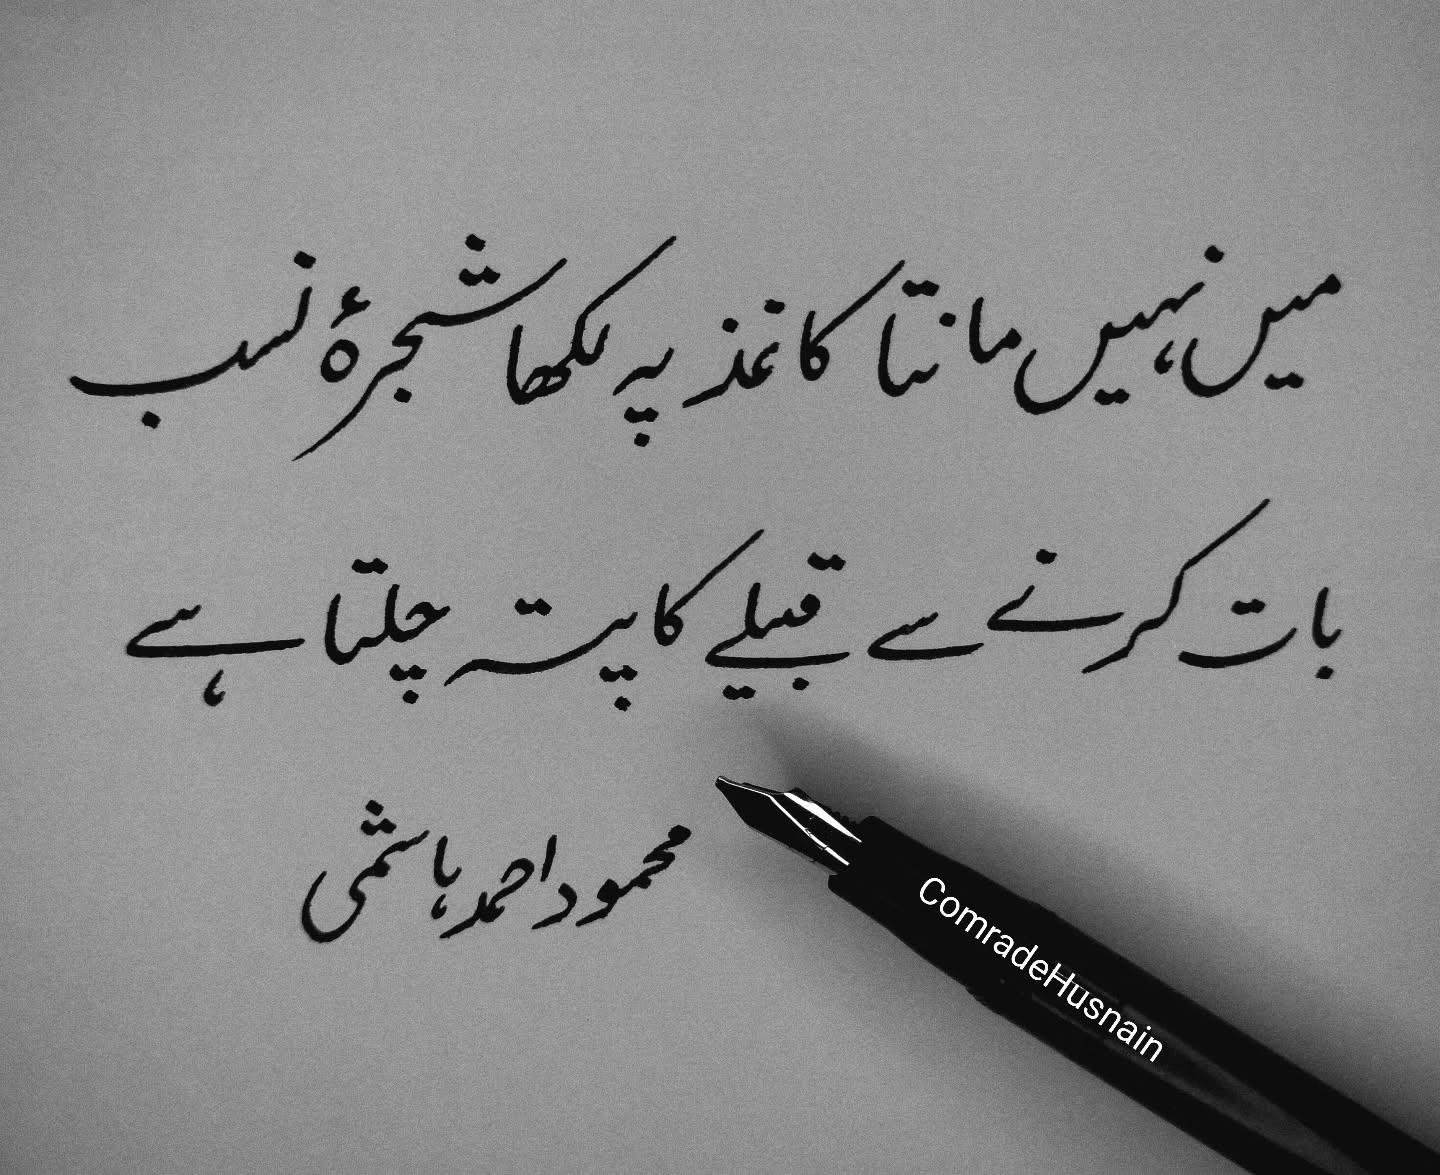 میں نہیں مانتا کاغذ پہ لکھا شجرۂ نسب
بات کرنے سے قبیلے کا پتہ چلتا ہے
محمود احمد ہاشمی
ComradeHusnain